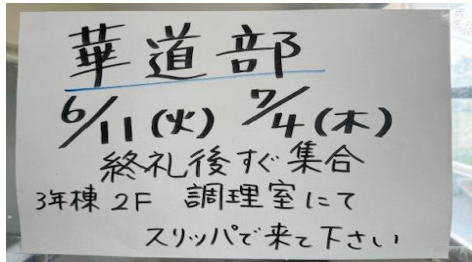 華道部
6/11(火) 7/4(木)
終礼後すぐ集合
3年棟 2F 調理室にて
スリッパで来て下さい